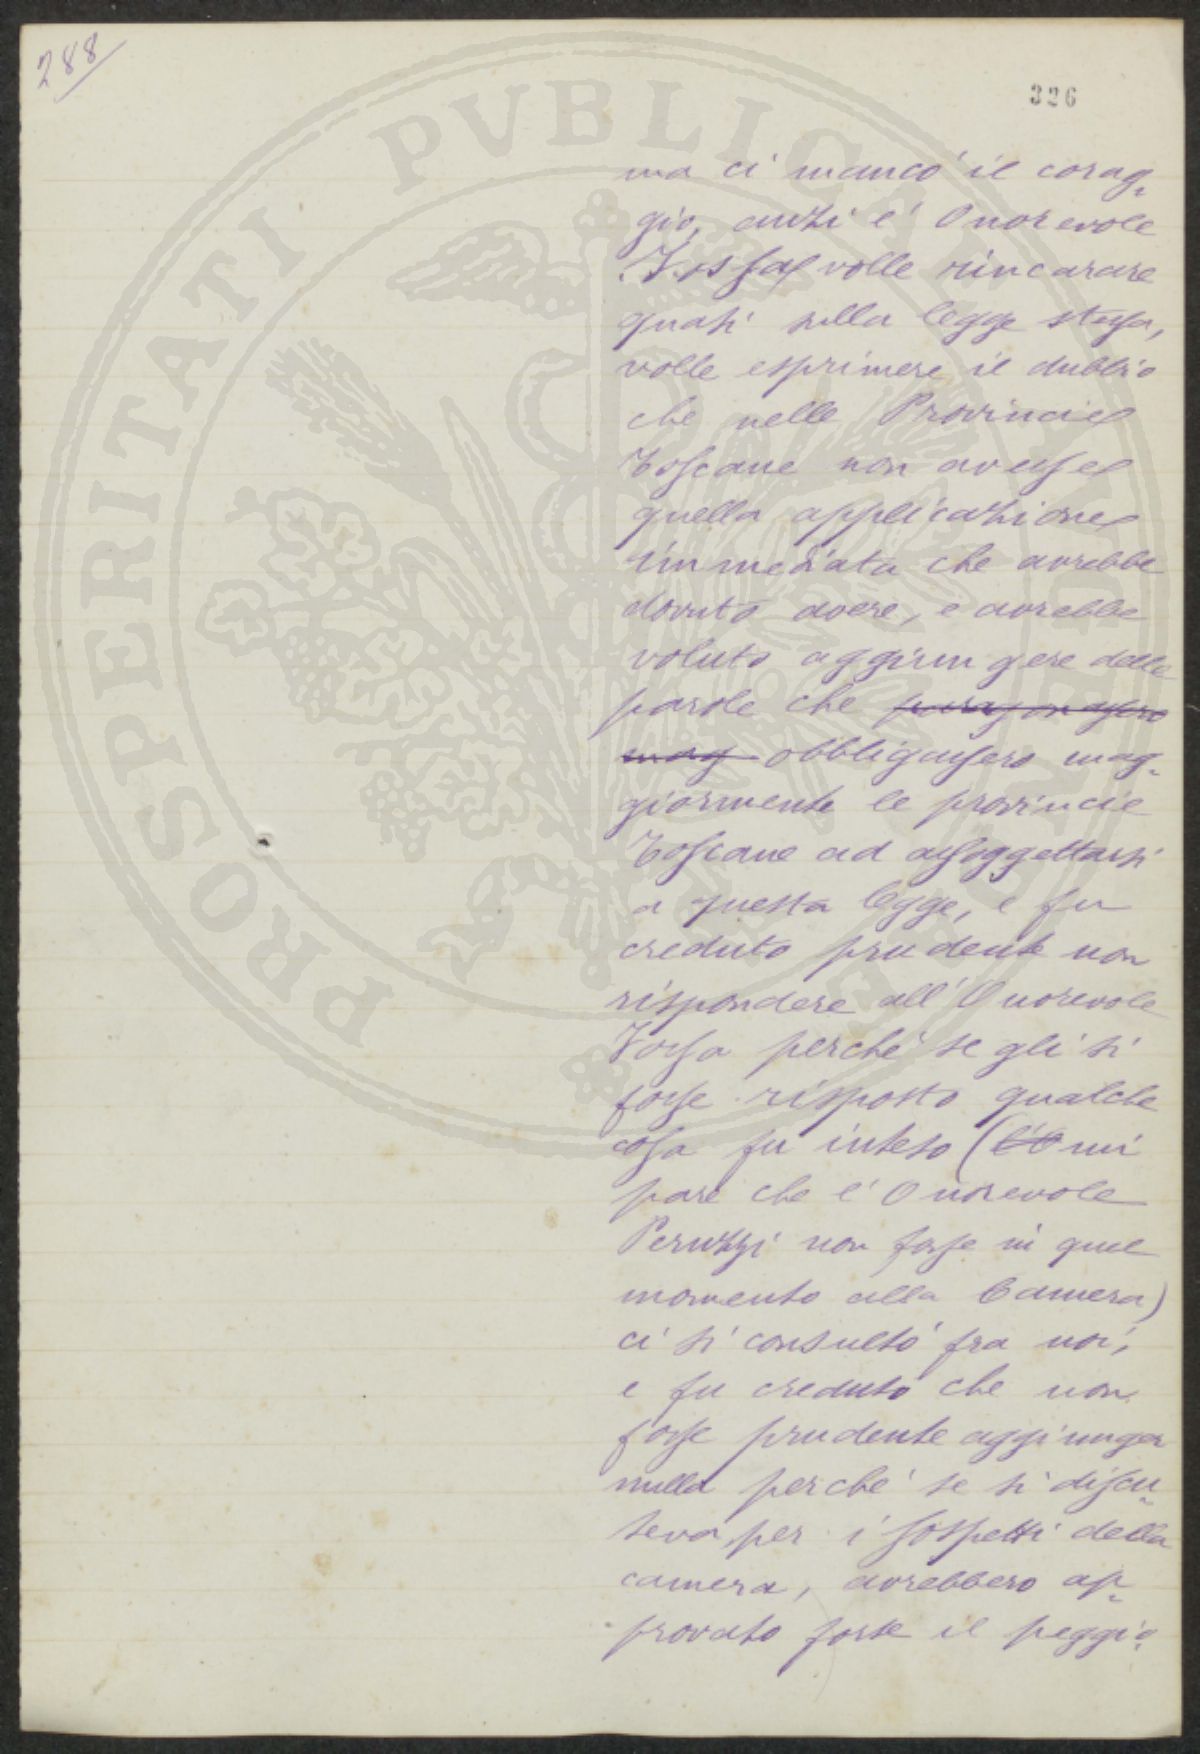 288
326
ma ci mancò il corag-
gio, anzi l'Onorevole
Fossa volle rincarare
quasi sulla legge stessa,
volle esprimere il dubbio
che nelle Provincie
Toscane non avesse
quella applicazione
immediata che avrebbe
dovuto avere, e avrebbe
voluto aggiungere delle
parole che paragonassero
mag obbligassero mag-
giormente le provincie
Toscane ad assoggettarsi
a questa legge, e fu
creduto prudente non
rispondere all'Onorevole
Fossa perchè se gli si
fosse risposto qualche
cosa fu inteso (l'O mi
pare che l'Onorevole
Peruzzi non fosse in quel
momento alla Camera)
ci si consultò fra noi,
e fu creduto che non
fosse prudente aggiunger
nulla perchè se si discu-
teva per i sospetti della
camera, avrebbero ap-
provato forse il peggio.
PROSPERITATI PVBLICAE